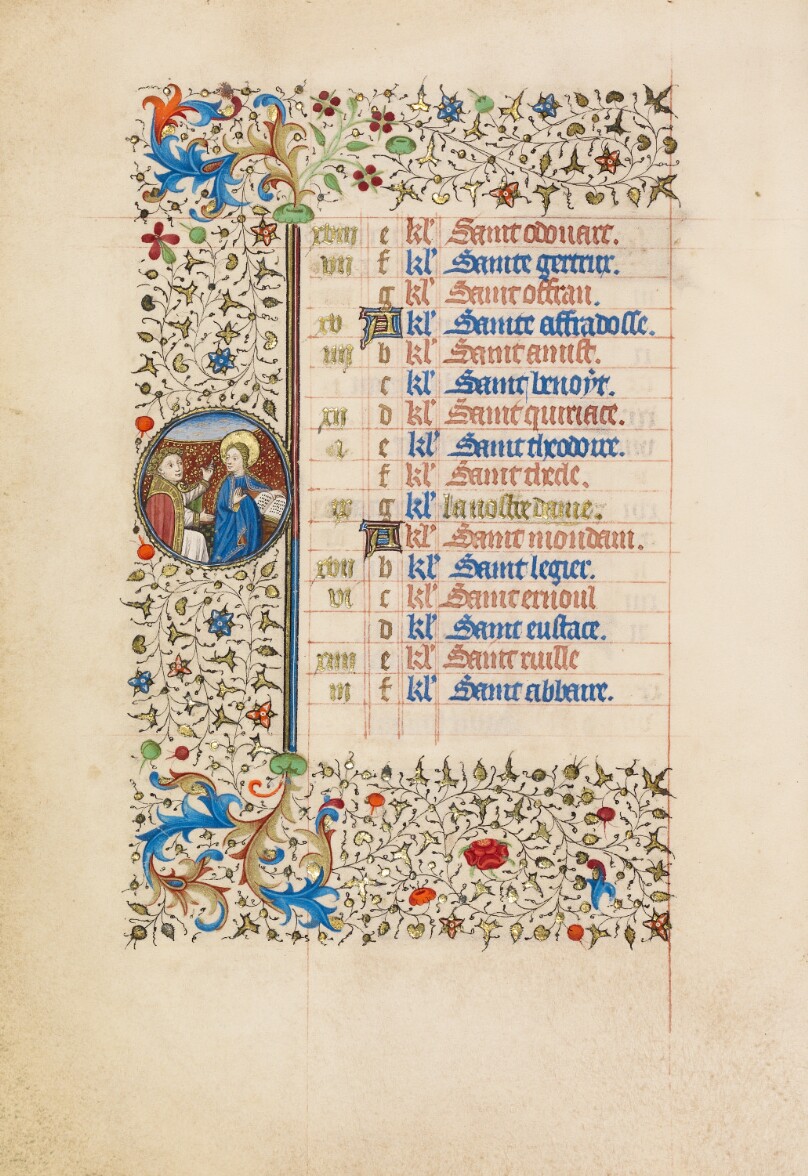 xviii e kl' Saint odouart.
vii f kl' Sainte gertrur.
g kl' Saint offran.
xv A kl' Sainte affradosse.
iiii b kl' Saint amist.
c kl' Saint benoyt.
xii d kl' Saint quiriace.
i e kl' Saint theodoire.
f kl' Saint thecle.
ix g kl' la nostre dame.
A kl' Saint mondain.
xvii b kl' Saint legier.
vi c kl' Saint ernoul
d kl' Saint eustace.
xiiii e kl' Saint rulle
iii f kl' Saint abbaire.